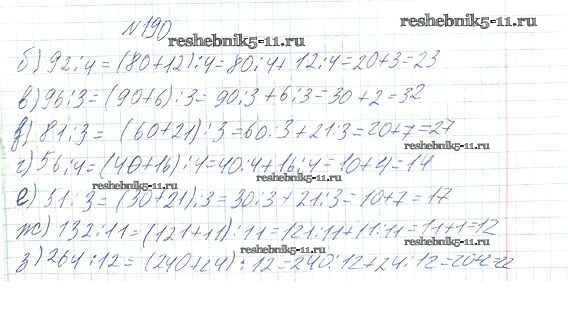 №190
reshebnik5-11.ru
reshebnik5-11.ru
б) 92:4 = (80+12):4 = 80:4 + 12:4 = 20+3 = 23
в) 96:3 = (90+6):3 = 90:3 + 6:3 = 30+2 = 32
reshebnik5-11.ru
д) 81:3 = (60+21):3 = 60:3 + 21:3 = 20+7 = 27
г) 56:4 = (40+16):4 = 40:4 + 16:4 = 10+4 = 14
reshebnik5-11.ru
reshebnik5-11.ru
е) 51:3 = (30+21):3 = 30:3 + 21:3 = 10+7 = 17
ж) 132:11 = (121+11):11 = 121:11 + 11:11 = 11+1 = 12
reshebnik5-11.ru
reshebnik5-11.ru
з) 264:12 = (240+24):12 = 240:12 + 24:12 = 20+2 = 22